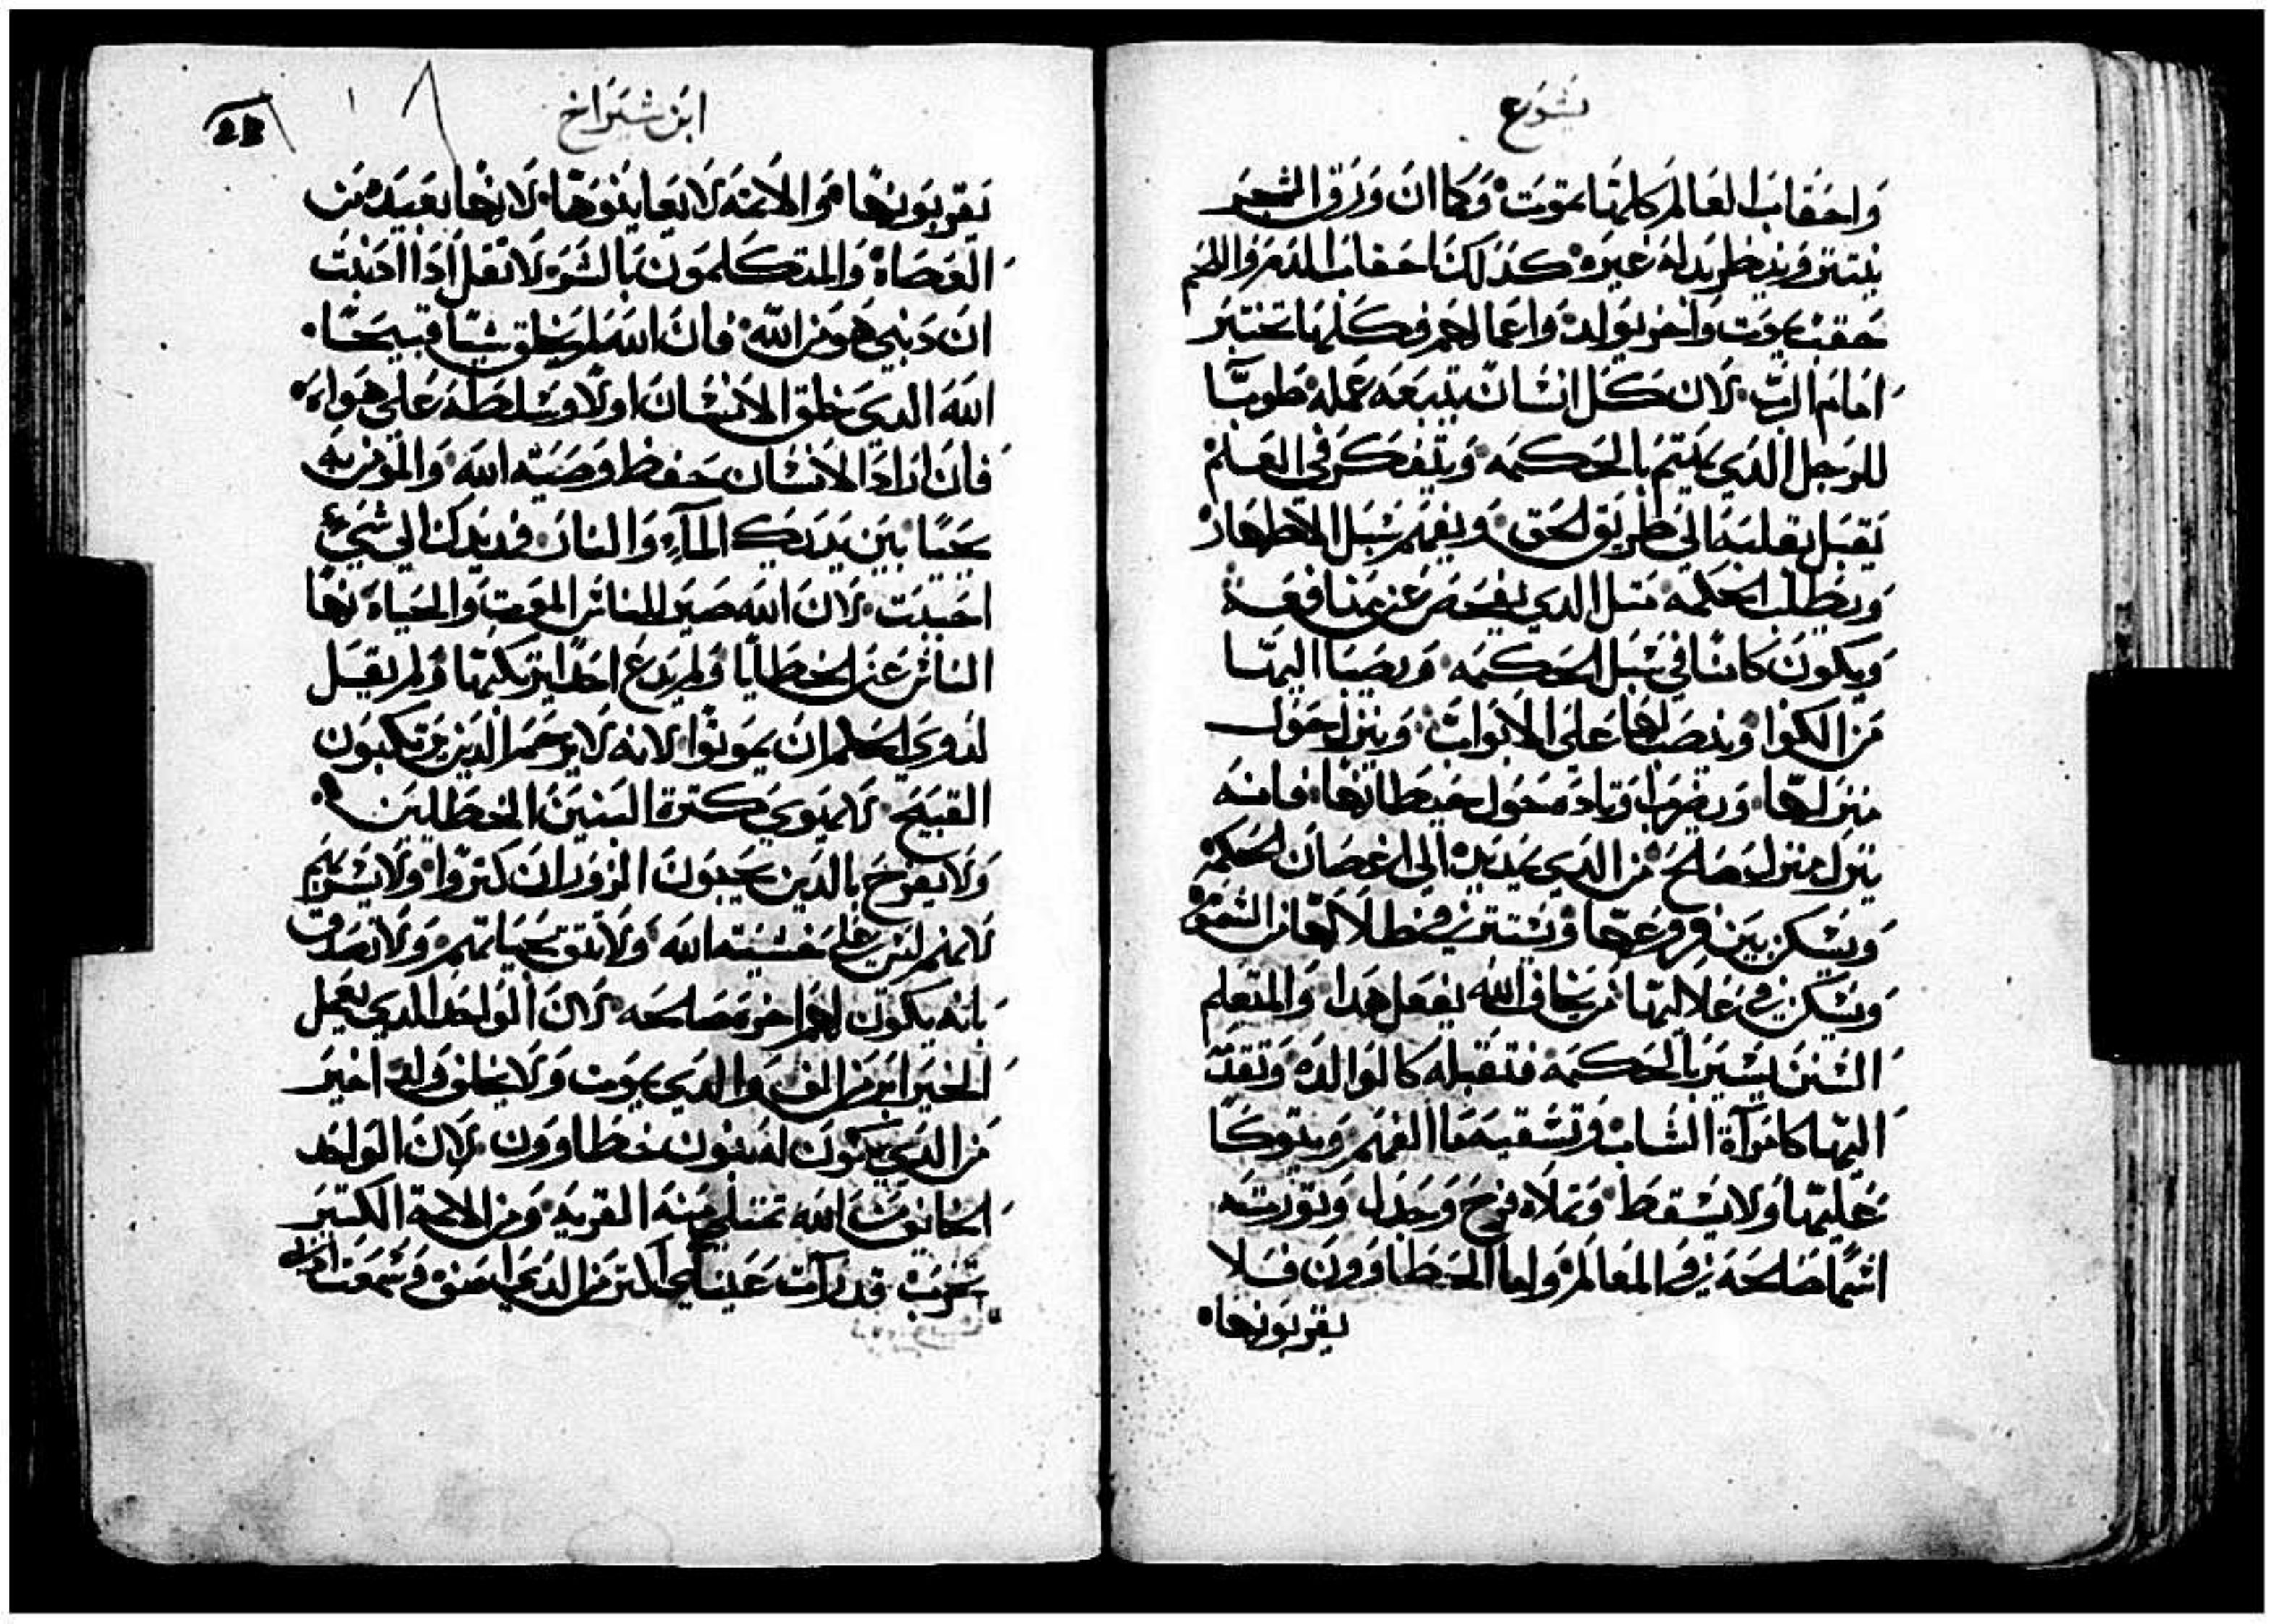 يشوع
واحقاب العالم كلها تموت وكما ان ورق الشجر
ينتتر ويظهر بداه غيره كذلك احقاب الدم واللحم
حقب يموت واخر يولد واعمالهم كلها تختبر
امام الرب لان كل انسان يتبعه عمله طوبا
للرجل الذي يهتم بالحكمه ويتفكر في العلم
يقبل بقلبه الي طريق الحق ويفهم سبل الاطهار
ويطلب الحكمه متل الدي يفحص عن منافعه
ويكون كامنا في سبل الحكمه ويصبا اليها
من الكوا وينصب لها علي الابواب وينزل حول
منزلها ويضرب اوتاده حول حيطانها فانه
ينزل منزل صلح من الدي يمد يده الي اغصان الحكمه
ويسكن بين فروعها ويستتر في ظلالها من الشموم
ويسكن في علاليها من يخاف الله يفعل هدا والمتعلم
السنن يسير بالحكمه فتقبله كالوالده وتقدمه
اليها كامرآة الشاب وتسقيه ما الفهم ويتوكا
عليها ولا يسقط وتملاه فرح وجدل وتورته
اسما صالحه في المعالم واما الخطاوون فلا
يقربونها
ابن شيراخ
يقربونها والاتمه لا يعاينوها لانها بعيده من
العصاة والمتكلمون بالشر لا تقل ادا ادنبت
ان دنبي هو من الله فان الله لم يخلق شيا قبيحا
الله الدي خلق الانسان اولا وسلطه علي هواه
فان اراد الانسان حفظ وصيته الله والمومن به
يحيا بين يديك المآء والنار فمد يدك الي شيء
احببت لان الله صير للناس الموت والحياه نها
الناس عن الخطايا ولم يدع احدا يرتكبها ولم يقبل
لدوي الحلم ان يموتوا لانه لا يرحم الدين يرتكبون
القبيح لا يهوي كترة البنين الخطالين
ولا يفرح بالدين يحبون الزور ان كتروا ولا يسر بهم
لانهم ليس علي خشية الله ولا تتق بحياتهم ولا تصدق
بانه يكون لهم اخره صالحه لان الواحد الدي يعمل
الخير ابر من الف والدي يموت ولا يخلف ولد اخير
من الدي يكون له بنون خطاوون لان الواحد
الخايف من الله تمتلي منه القريه ومن الاتمة الكتير
تخرب قد رآت عيناي اكتر من الدي اصف وسمعت ادناي